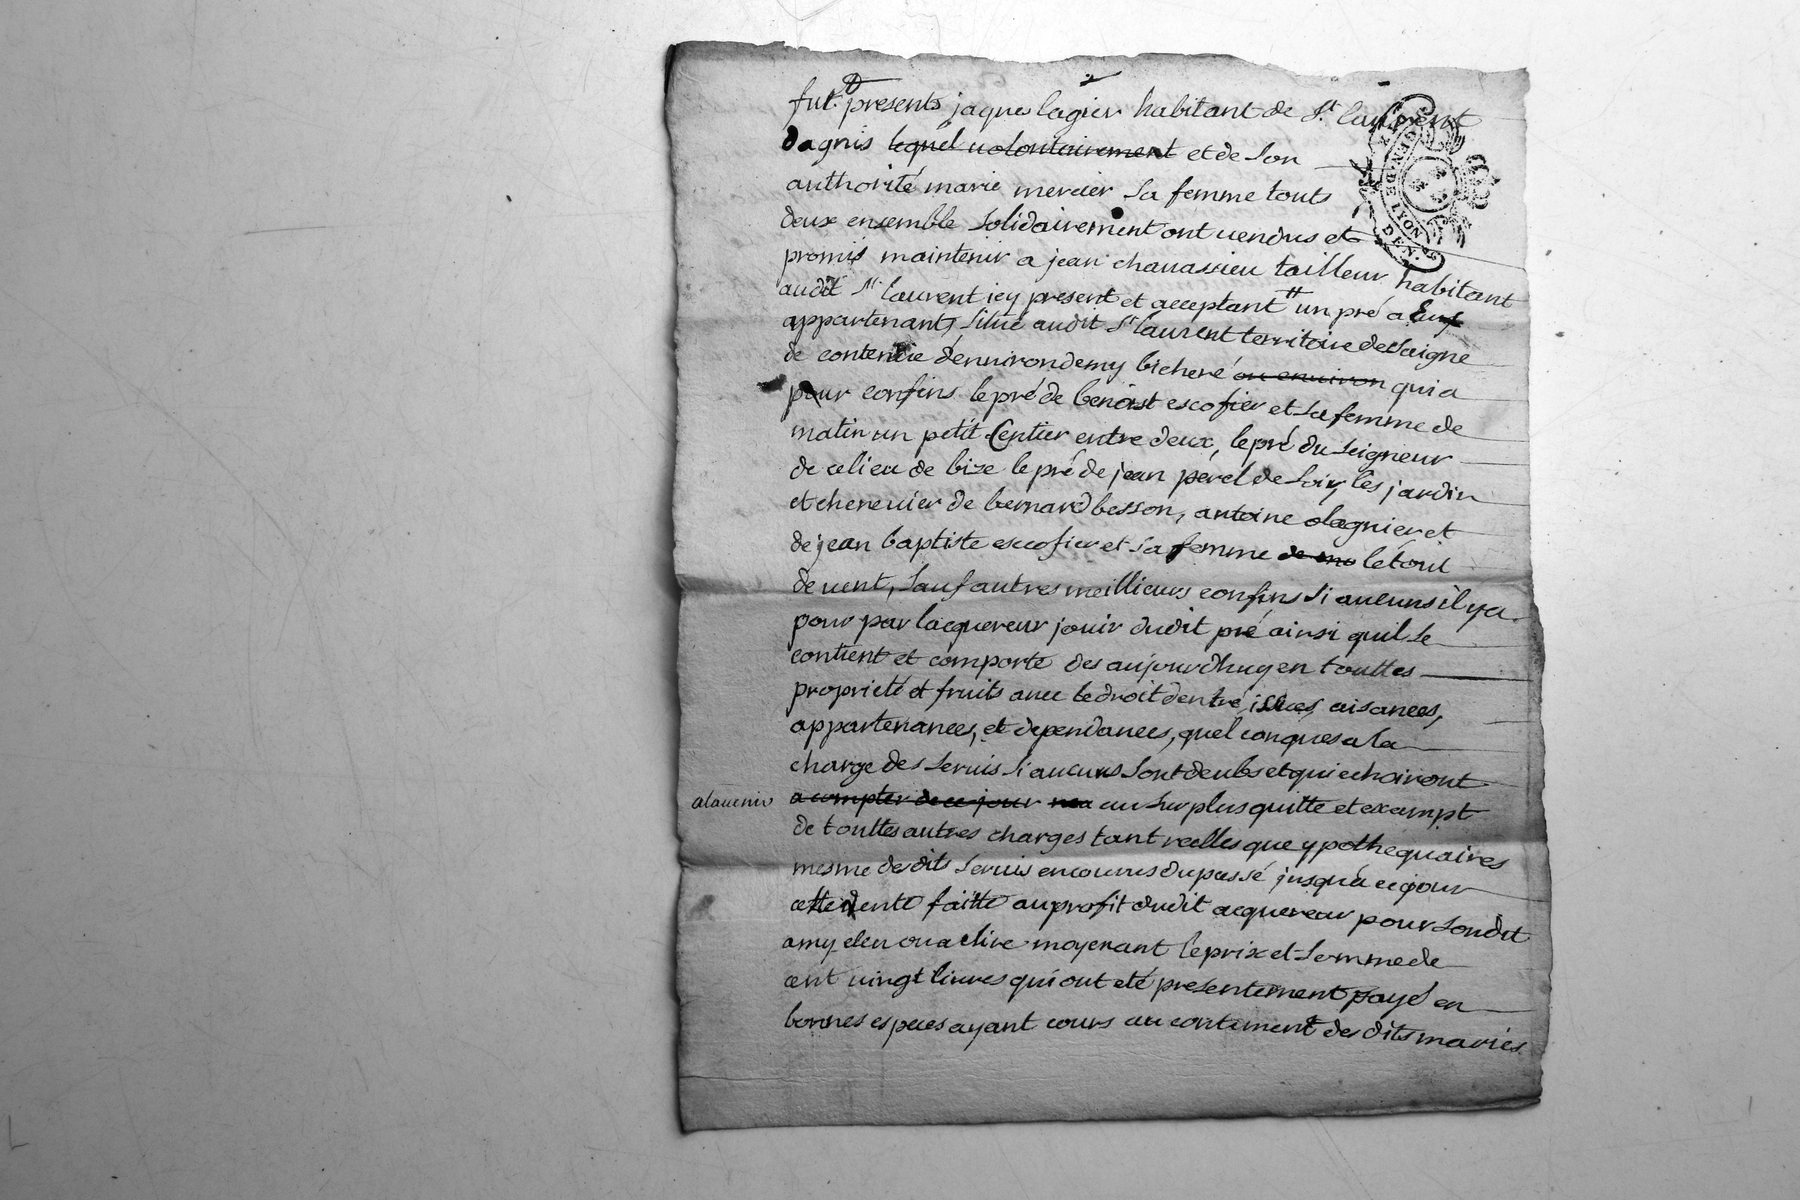 fut presents jaques lagier habitant de St. laurent
dagnis lequel uolontairement et de son
authorité marie mercier sa femme touts
deux ensemble solidairement ont uendus et
promis maintenir a jean chauassieu tailleur habitant
audit St laurent icy present et acceptant un pré a Eux
appartenant, situé audit St laurent territoire de
de contenue denuiron demy bicheré ou enuiron qui a
pour confins le pré de benoist escofier et sa femme de
matin un petit sentier entre deux, le pré du seigneur
de ce lieu de bize le pré de jean perel de soir, les jardin
et cheneuier de bernard besson, antoine olagnier et
de jean baptiste escofier et sa femme le tout
de uent, sauf autres meillieurs confins si aucuns il ya.
pour par lacquereur jouir dudit pré ainsi quil se
contient et comporte des aujourdhuy en touttes
proprieté et fruits auec le droit dentré, issues, aisances,
appartenances, et dependances, quel conques a la
charge des seruis si aucuns sont deubs et qui echoiront
alauenir a compter de ce jour au surplus quitte et exampt
de touttes autres charges tant reelles que ypothequaires
mesme desdits seruis encourus du passé jusqua ce jour
cette uente faitte au profit dudit acquereur pour son dit
amy eleu ou a elire moyenant le prix et somme de
cent uingt liures qui ont eté presentement payé en
bonnes especes ayant cours au contement des dits mariés
GEN. DE LYON
DEN.